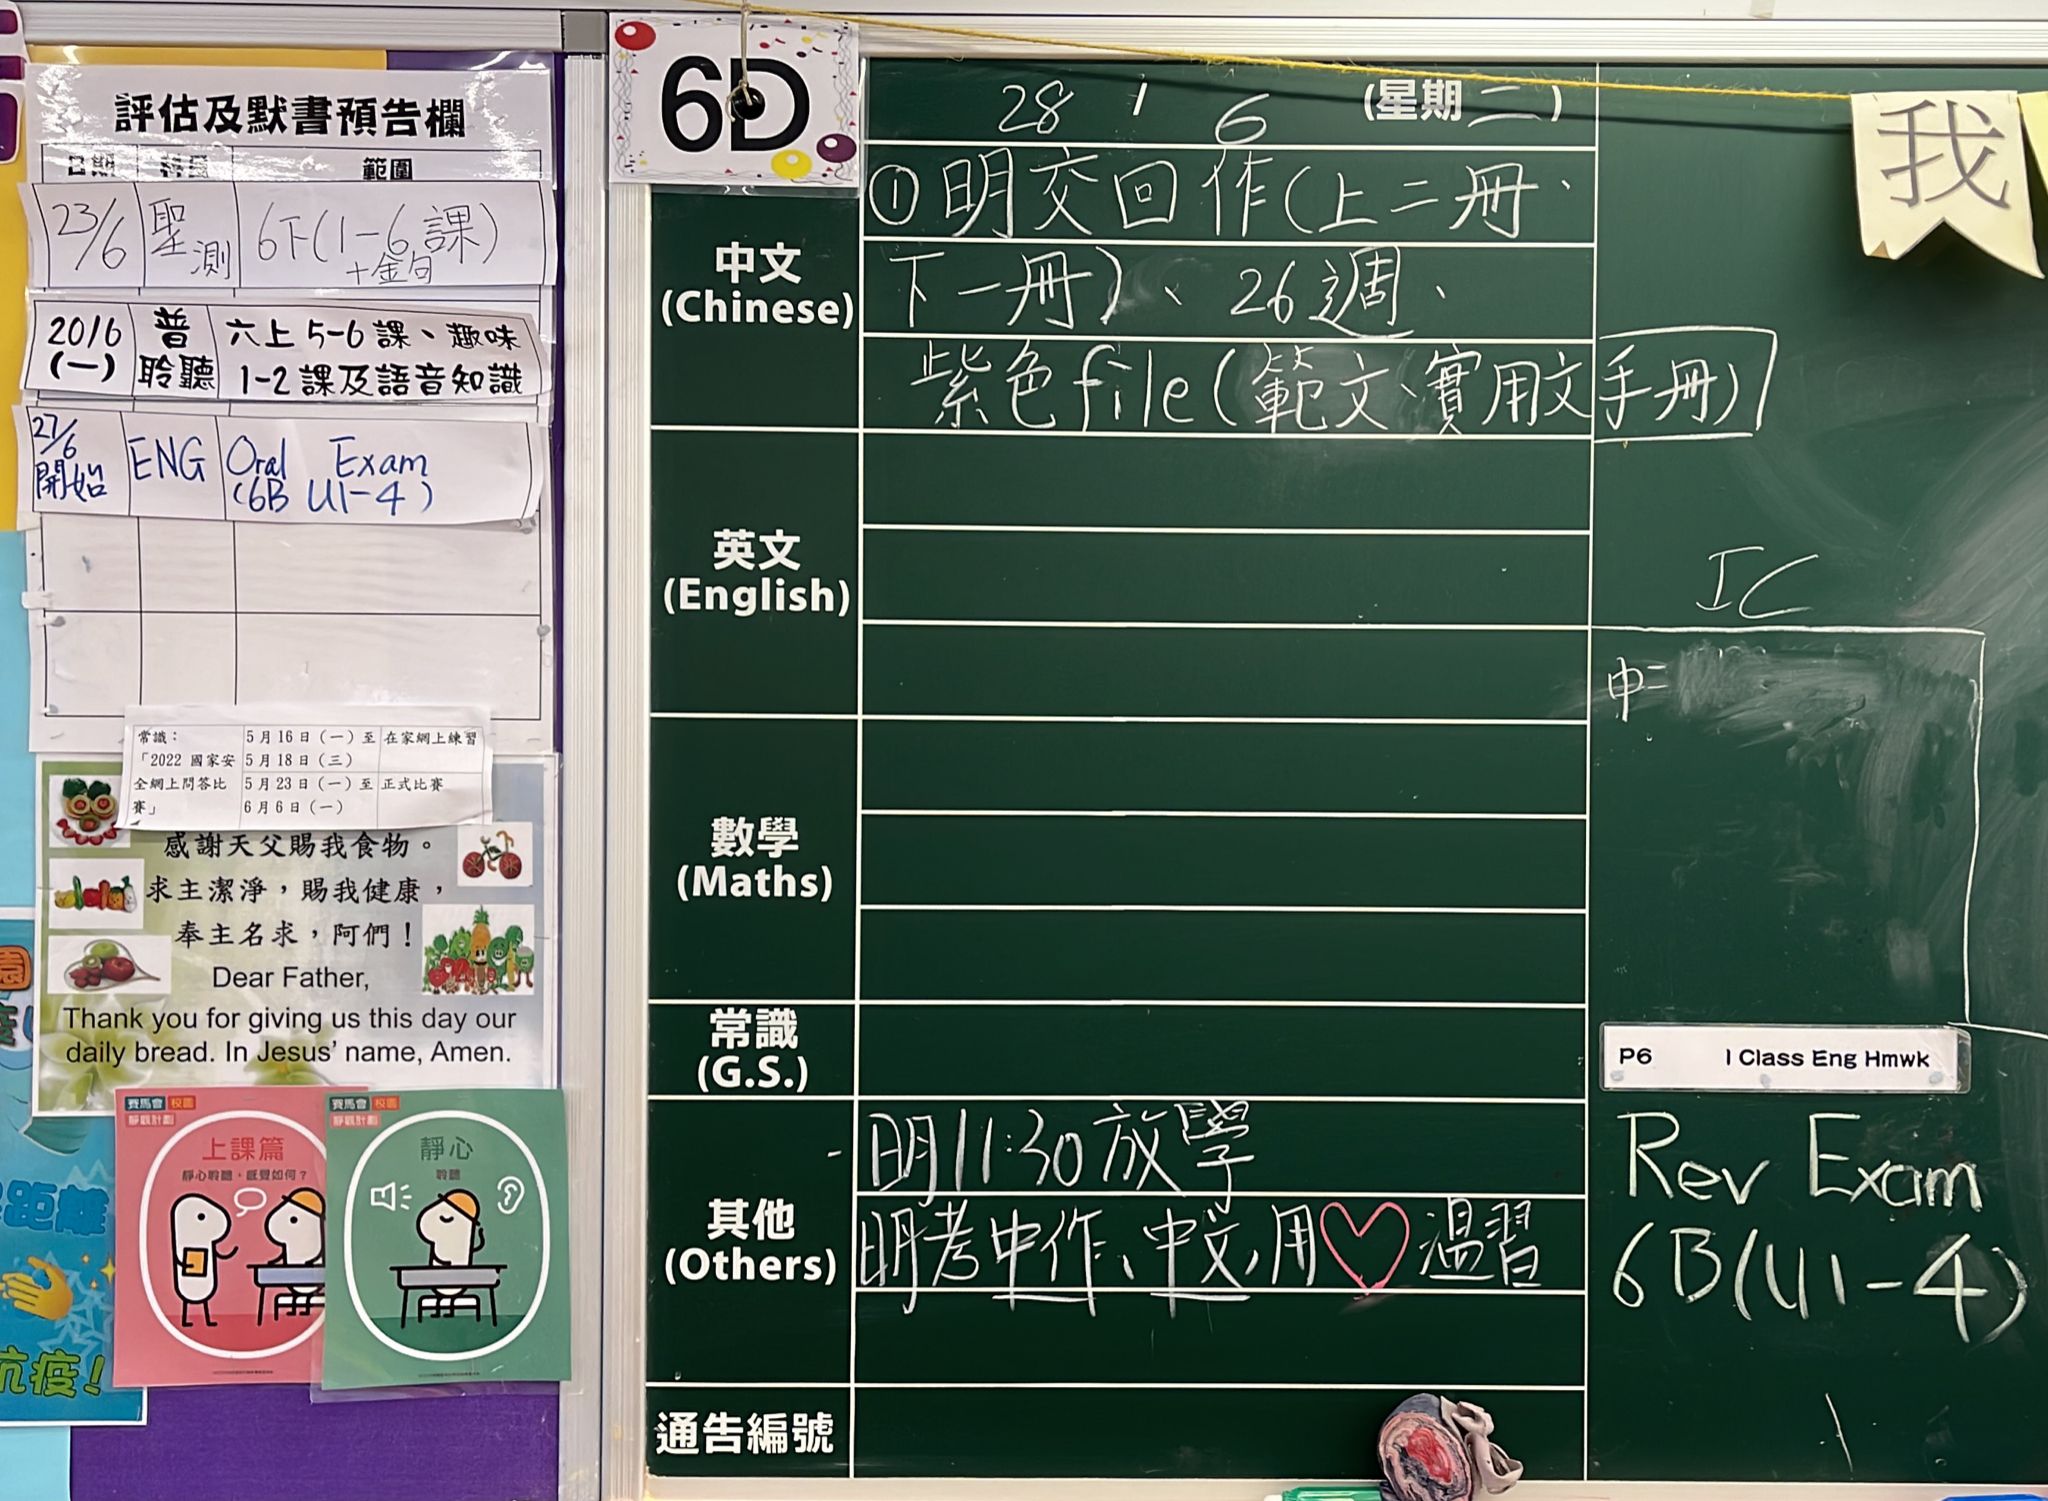 評估及默書預告欄
日期 科目 範圍
23/6 聖測 6下(1-6課)
+金句
20/6 (一) 普聆聽 六上5-6課、趣味
1-2課及語音知識
27/6 開始 ENG Oral Exam
(6B U1-4)
常識： 5月16日（一）至 在家網上練習
「2022 國家安 5月18日（三）
全網上問答比 5月23日（一）至 正式比賽
賽」 6月6日（一）
感謝天父賜我食物。
求主潔淨，賜我健康，
奉主名求，阿們！
Dear Father,
Thank you for giving us this day our
daily bread. In Jesus' name, Amen.
賽馬會 校園
靜觀計劃
上課篇
靜心聆聽，感覺如何？
賽馬會 校園
靜觀計劃
靜心
聆聽
園
距離
抗疫！
6D
28 1 6 (星期二)
中文
(Chinese)
①明交回作(上二冊、
下一冊)、26週、
紫色file(範文、實用文手冊)
英文
(English)
數學
(Maths)
常識
(G.S.)
其他
(Others)
-明11:30放學
明考中作、中文,用♡溫習
通告編號
我
IC
中=
P6 1 Class Eng Hmwk
Rev Exam
6B(U1-4)